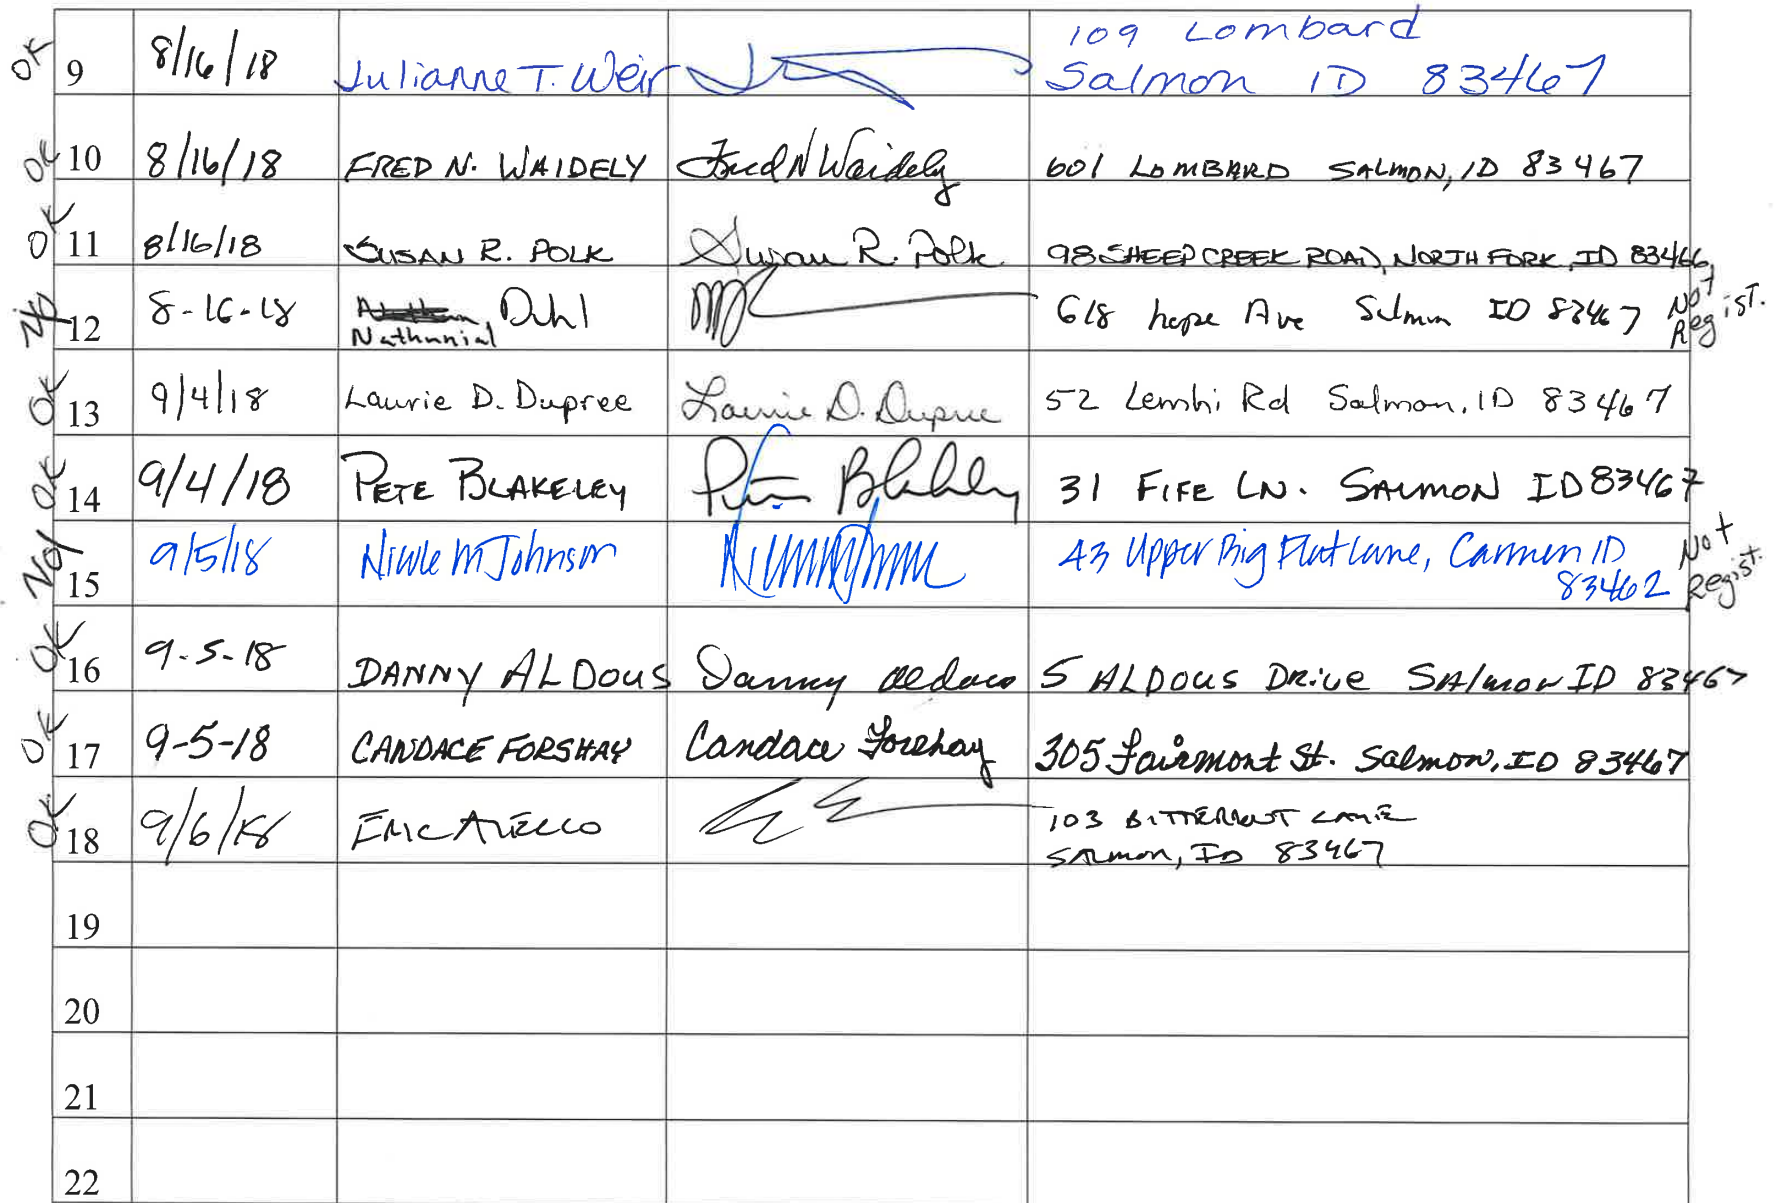 109 Lombard
OK 9 8/16/18 Julianne T. Weir Salmon ID 83467
OK 10 8/16/18 FRED N. WAIDELY Fred N Waidely 601 LOMBARD SALMON, ID 83467
OK 11 8/16/18 SUSAN R. POLK Susan R. Polk 98 SHEEP CREEK ROAD, NORTH FORK, ID 83466
No 12 8-16-18 Dahl 618 hope Ave Salmon ID 83467 Not Regist.
Nathanial
OK 13 9/4/18 Laurie D. Dupree Laurie D. Dupree 52 Lemhi Rd Salmon, ID 83467
OK 14 9/4/18 PETE BLAKELEY Blakeley 31 FIFE LN. SALMON ID 83467
No 15 9/5/18 Nicole M Johnson 43 Upper Big Flat Lane, Carmen ID Not
83462 Regist.
OK 16 9-5-18 DANNY ALDOUS Danny Aldous 5 ALDOUS DRive SAlmon ID 83467
OK 17 9-5-18 CANDACE FORSHAY Candace Forshay 305 Fairmont St. Salmon, ID 83467
OK 18 9/6/18 ERIC 103 BITTERROOT LANE
SALMON, ID 83467
19
20
21
22